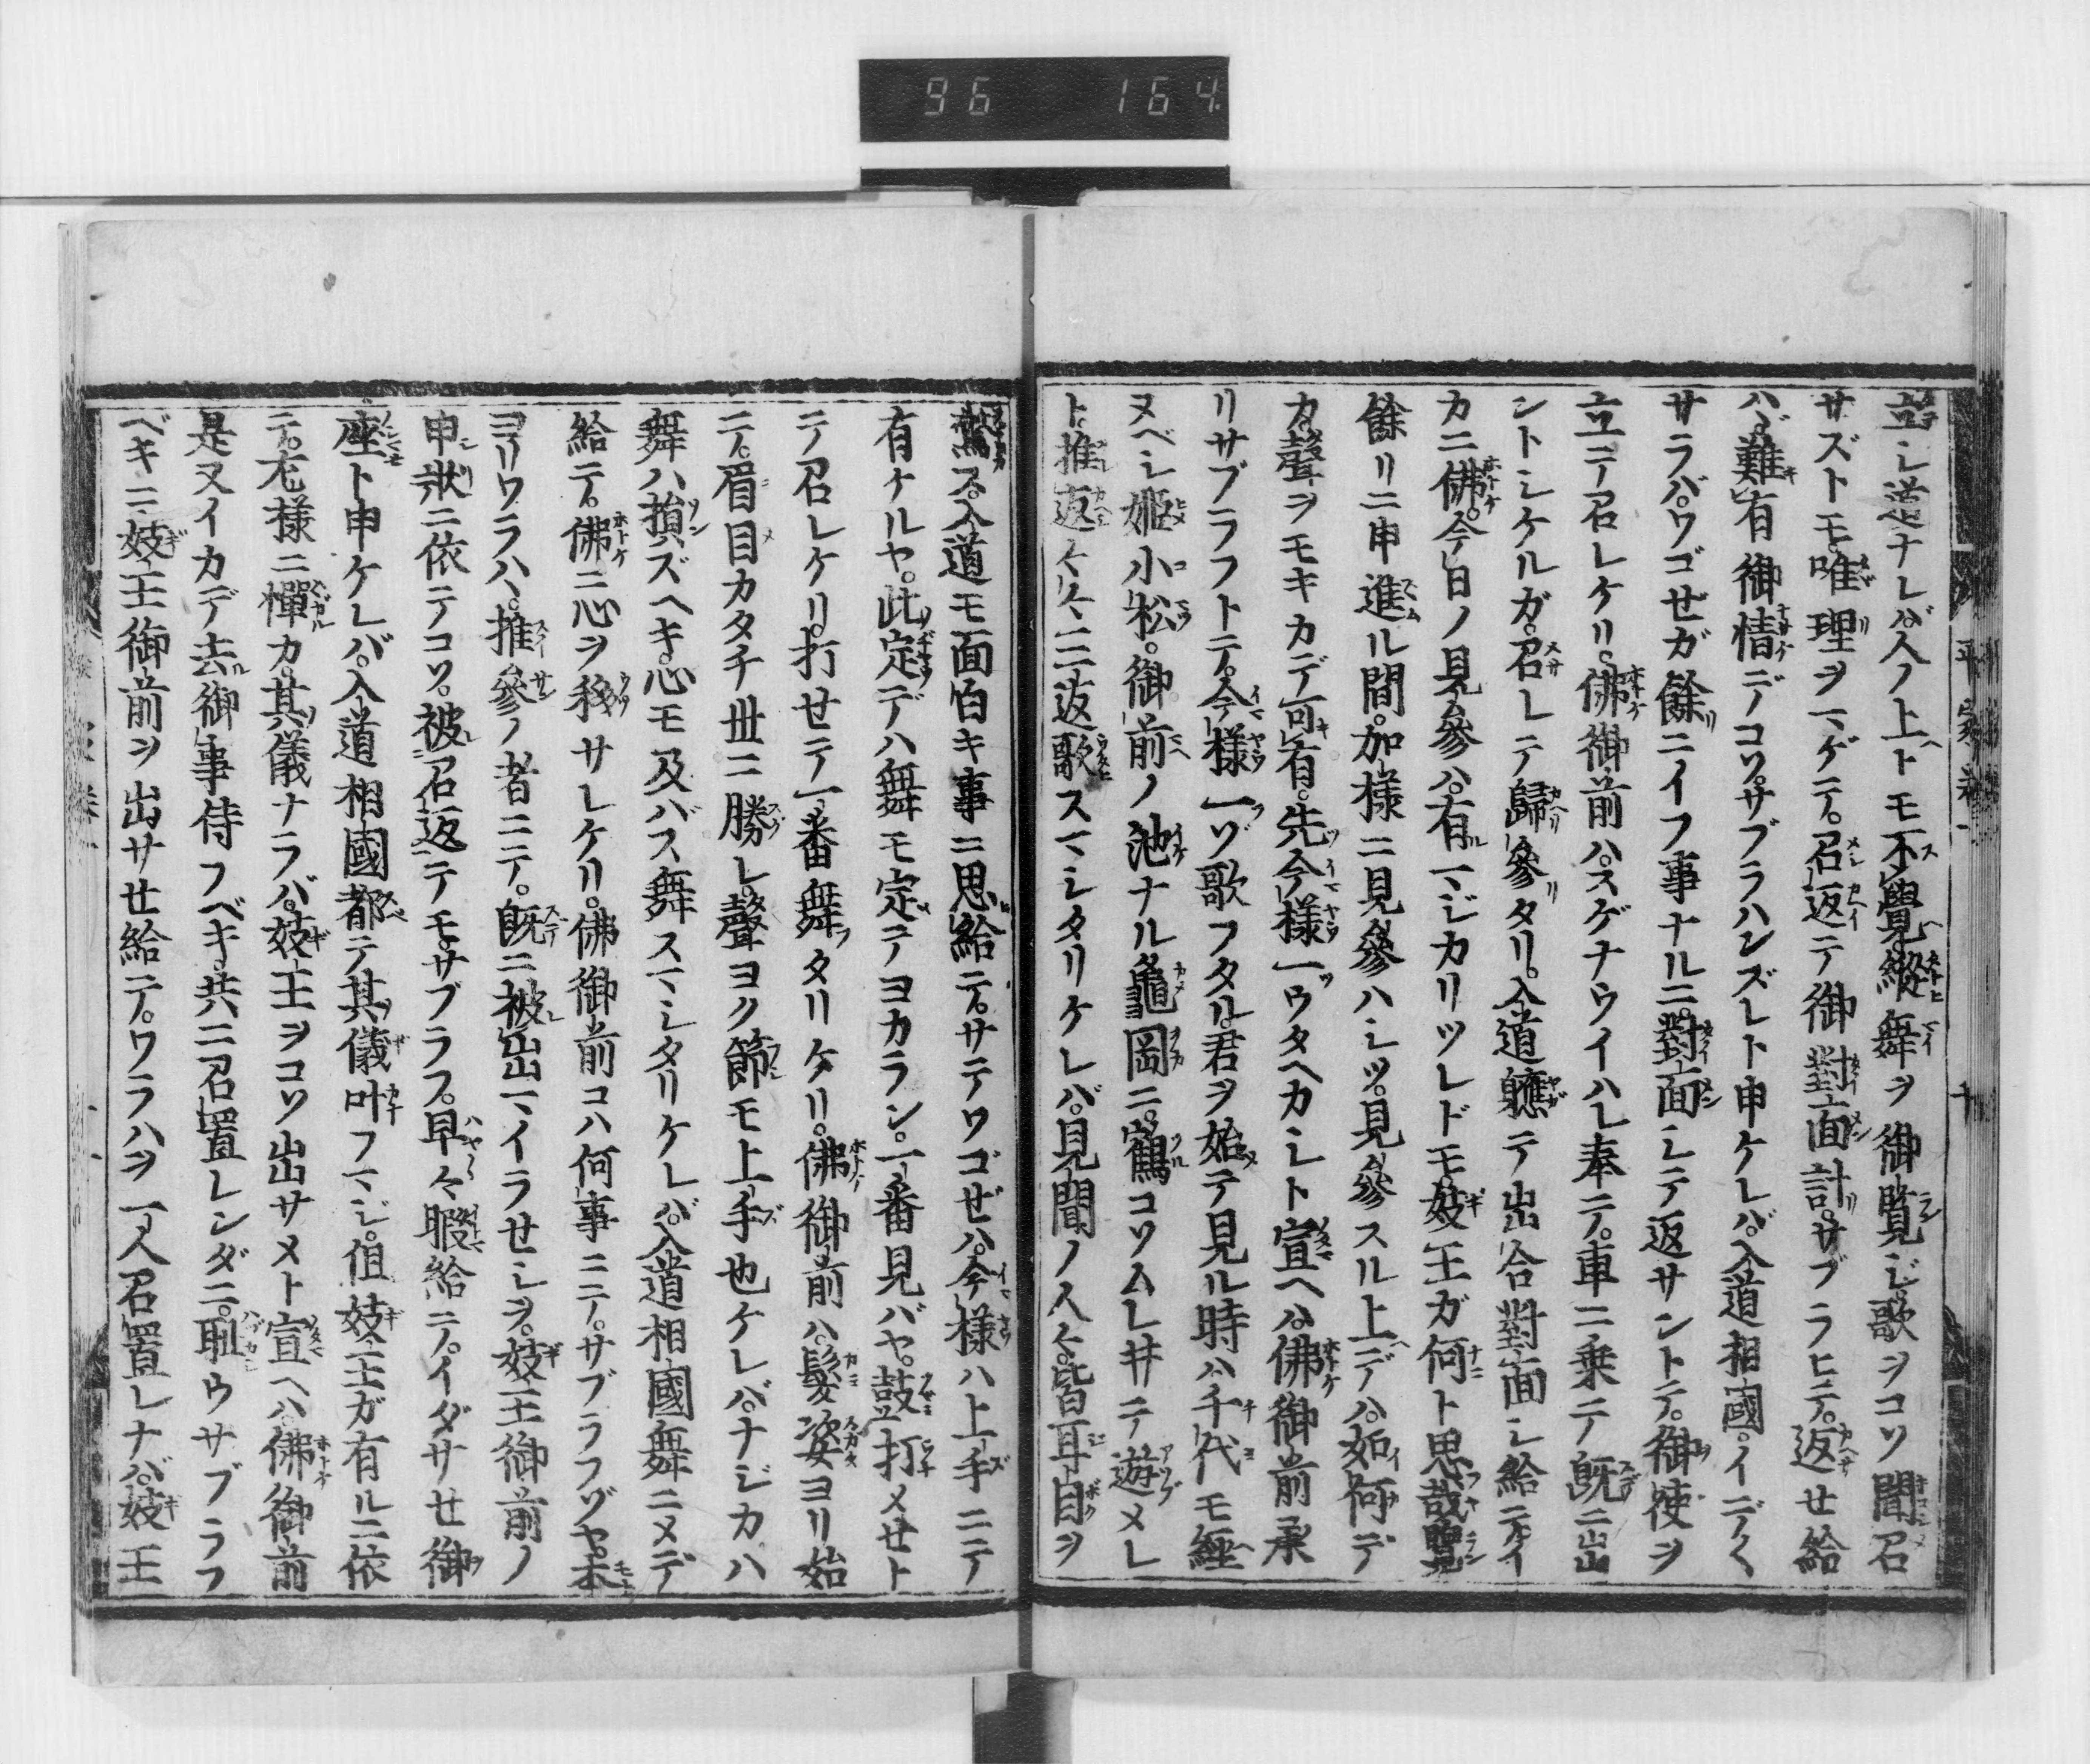 96 164
立シ道ナレバ人ノ上トモ不覺縱舞ヲ御覽ジ歌ヲコソ聞召
サズトモ唯理ヲマゲテ。召返テ御對面計サブラヒテ。返セ給
ハヾ難有御情デコソサブラハンズレト申ケレバ入道相國。イデ〱
サラバ。ワゴゼガ餘ニイフ事ナルニ對面シテ返サントテ。御使ヲ
立テ召レケリ。佛御前ハスゲナウイハレ奉テ。車ニ乗テ既ニ出
ントシケルガ。召レテ歸參タリ。入道軈テ出合對面シ給テ。イ
カニ佛。今日ノ見參ハ。有マジカリツレドモ妓王ガ何ト思哉覽
餘リニ申進ル間。加樣ニ見參ハシツ。見參スル上デハ如何デ
カ聲ヲモキカデ可有。先今樣一ツウタヘカシト宣ヘバ佛御前承
リサブラフトテ。今樣一ツゾ歌フタル。君ヲ始テ見ル時ハ千代モ經
ヌベシ姬小松。御前ノ池ナル龜岡ニ。鶴コソムレ井テ遊メレ
ト。推返〱三返歌スマシタリケレバ。見聞ノ人々皆耳目ヲ
平家巻一 十
驚ス。入道モ面白キ事ニ思給テ。サテワゴゼハ。今樣ハ上手ニテ
有ケルヤ。此定デハ舞モ定テヨカラン。一番見バヤ。鼓打メセト
テ召レケリ。打セテ一番舞タリケリ。佛御前ハ。髮姿ヨリ始
テ。眉目カタチ丗ニ勝レ。聲ヨク節モ上手也ケレバ。ナジカハ
舞ハ損ズヘキ。心モ及バス舞スマシタリケレバ。入道相國舞ニメデ
給テ。佛ニ心ヲ移サレケリ。佛御前コハ何事ニテ。サブラフゾヤ。本
ヨリワラハヽ。推參ノ者ニテ。既ニ被出マイラセシヲ。妓王御前ノ
申狀ニ依テコソ。被召返テモ。サブラフ。早々暇給テ。イダサセ御
座ト申ケレバ。入道相國都テ其儀叶フマジ。但妓王ガ有ルニ依
テ。左樣ニ憚カ。其儀ナラバ。妓王ヲコソ出サメト宣ヘバ。佛御前
是又イカデ去御事侍フベキ。共ニ召置レンダニ。耻ウサブラフ
ベキニ。妓王御前ヲ出サセ給テ。ワラハヲ一人召置レナバ。妓王